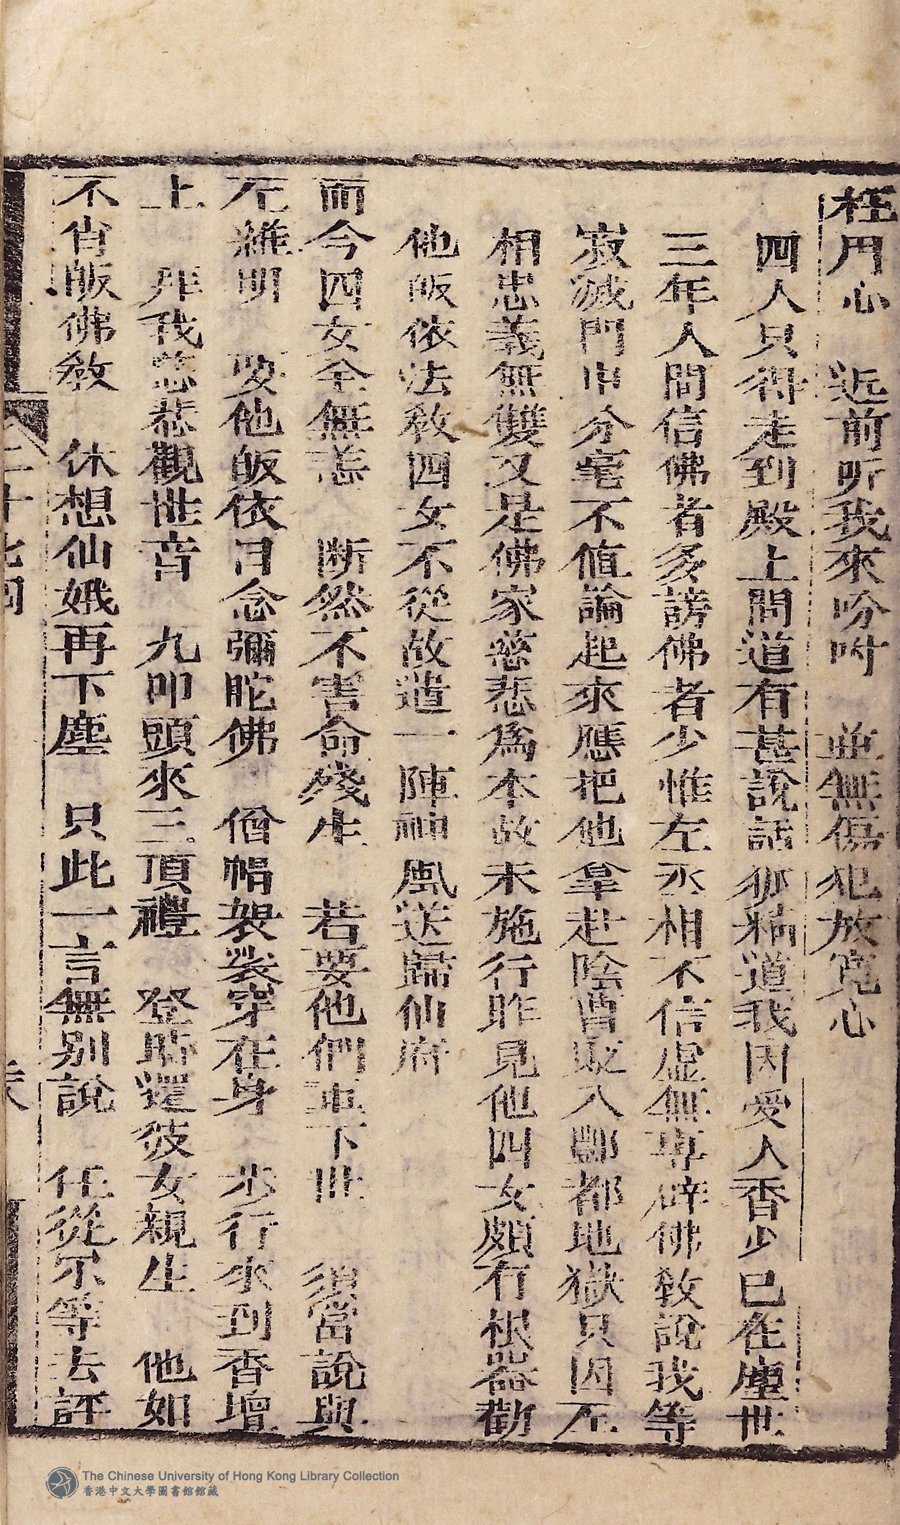 枉用心　近前听我來吩咐　並無傷犯放寬心
四人只得走到殿上問道有甚說話狐精道我因愛人香少已在塵世
三年人間信佛者多謗佛者少惟左丞相不信虛無專辟佛教說我等
寂滅門中分毫不值論起來應把他拿赴陰曹取入酆都地獄只因左
相忠義無雙又是佛家慈悲為本故未施行昨見他四女頗有根器勸
他皈依法教四女不從故遣一陣神風送歸仙府
而今四女全無恙　断然不害命殘生　若要他們車下世　須當說與
左維明　要他皈依日念彌陀佛　僧帽袈裟穿在身　步行來到香壇
上　拜我慈悲觀世音　九叩頭來三頂禮　登時還彼女親生　他如
不肯皈佛教　休想仙娥再下塵　只此一言無別說　任從尔等去評
二十七回
The Chinese University of Hong Kong Library Collection
香港中文大學圖書館館藏